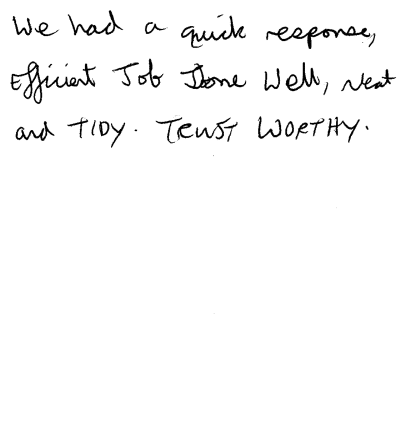 We had a quick response,
Efficient Job Done Well, Neat
and TIDY. TRUST WORTHY.